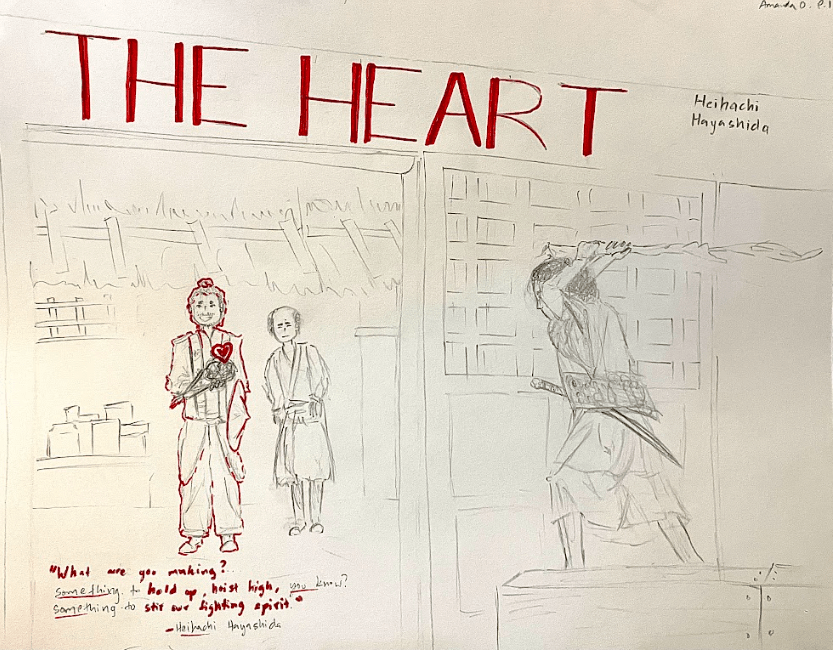 Amanda O. P.1
THE HEART
Heihachi
Hayashida
"What are you making?
something to hold up, hoist high, you know?
something to stir our fighting spirit."
-Heihachi Hayashida